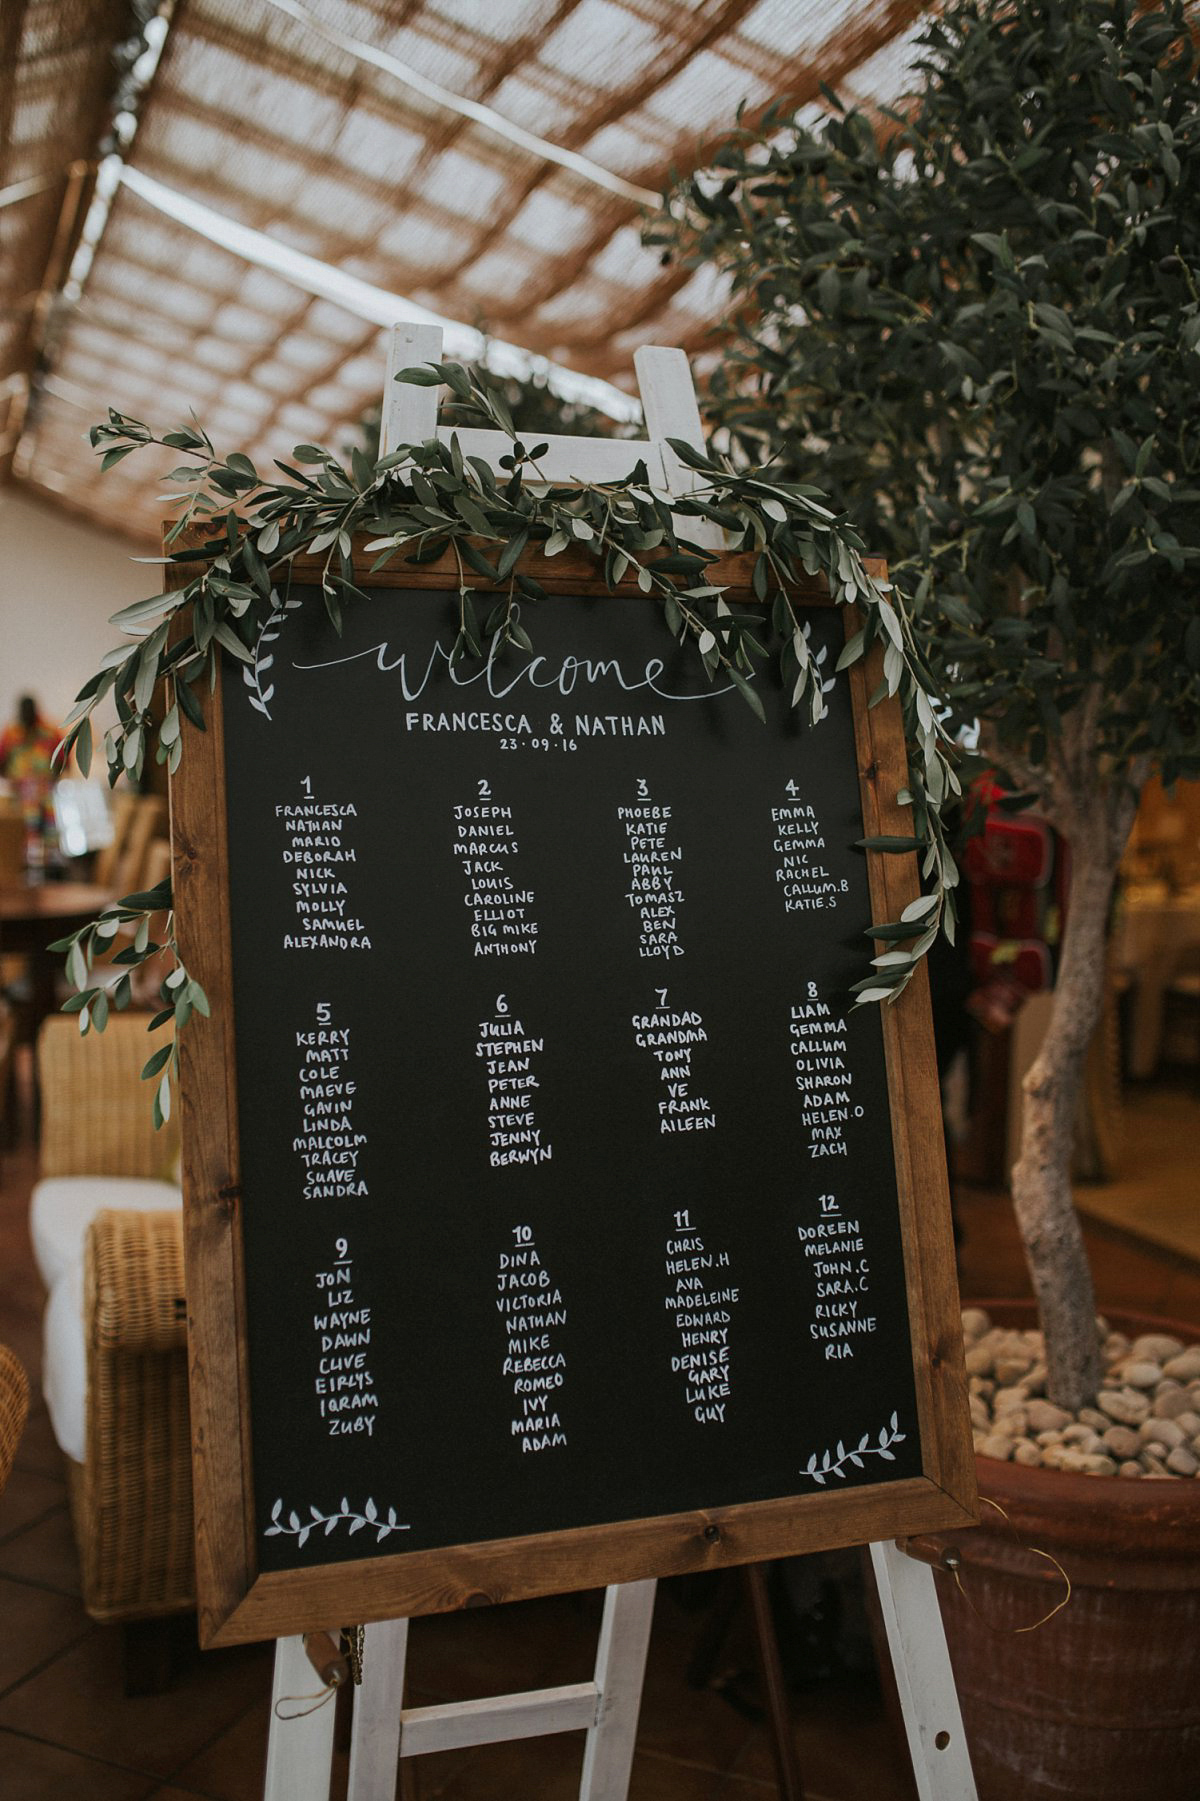 welcome
FRANCESCA & NATHAN
23·09·16
1
FRANCESCA
NATHAN
MARIO
DEBORAH
NICK
SYLVIA
MOLLY
SAMUEL
ALEXANDRA
2
JOSEPH
DANIEL
MARCUS
JACK
LOUIS
CAROLINE
ELLIOT
BIG MIKE
ANTHONY
3
PHOEBE
KATIE
PETE
LAUREN
PAUL
ABBY
TOMASZ
ALEX
BEN
SARA
LLOYD
4
EMMA
KELLY
GEMMA
NIC
RACHEL
CALLUM.B
KATIE.S
5
KERRY
MATT
COLE
MAEVE
GAVIN
LINDA
MALCOLM
TRACEY
SUAVE
SANDRA
6
JULIA
STEPHEN
JEAN
PETER
ANNE
STEVE
JENNY
BERWYN
7
GRANDAD
GRANDMA
TONY
ANN
VE
FRANK
AILEEN
8
LIAM
GEMMA
CALLUM
OLIVIA
SHARON
ADAM
HELEN.O
MAX
ZACH
9
JON
LIZ
WAYNE
DAWN
CLIVE
EIRLYS
IQRAM
ZUBY
10
DINA
JACOB
VICTORIA
NATHAN
MIKE
REBECCA
ROMEO
IVY
MARIA
ADAM
11
CHRIS
HELEN.H
AVA
MADELEINE
EDWARD
HENRY
DENISE
GARY
LUKE
GUY
12
DOREEN
MELANIE
JOHN.C
SARA.C
RICKY
SUSANNE
RIA